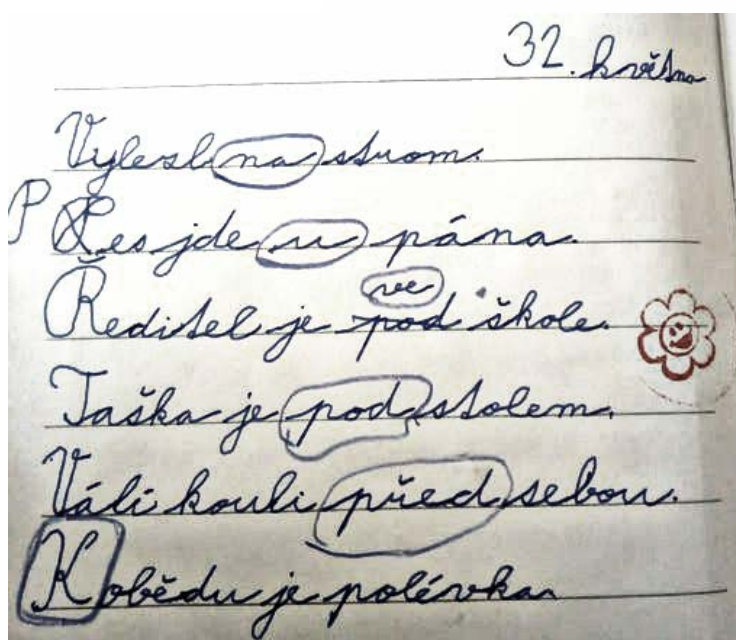 32. května
Vylezl na strom.
P Pes jde u pána.
ve
Ředitel je pod škole.
Taška je pod stolem.
Válí kouli před sebou.
K obědu je polévka.